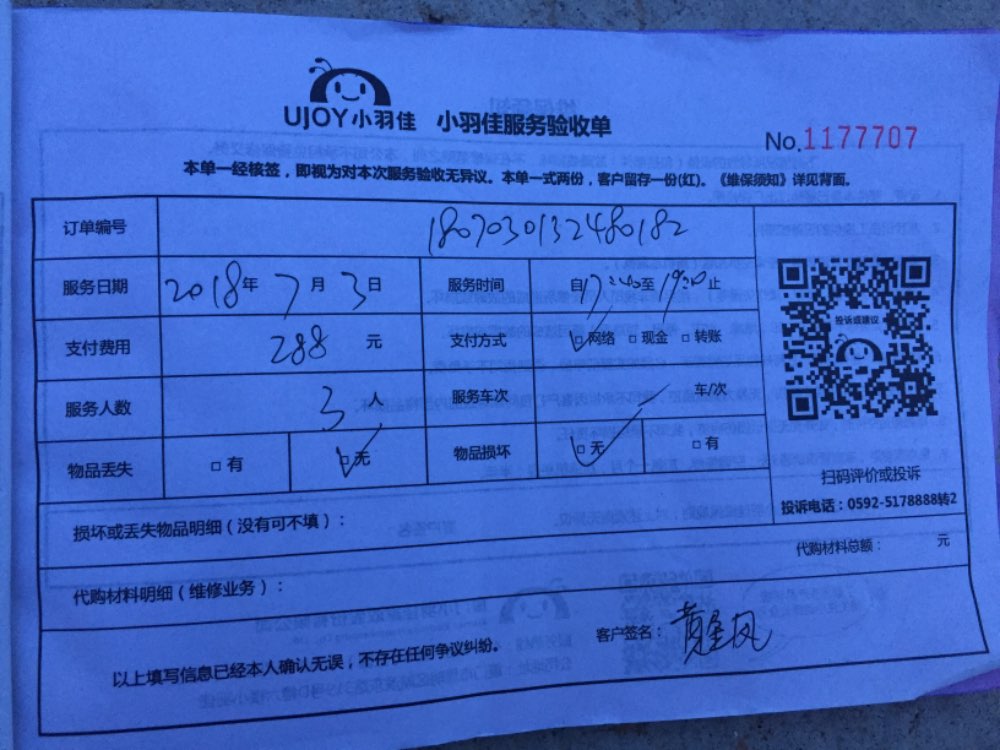 UJOY小羽佳 小羽佳服务验收单
No.1177707
本单一经核签，即视为对本次服务验收无异议。本单一式两份，客户留存一份(红)。《维保须知》详见背面。
订单编号 1807030132480182
服务日期 2018年7月3日 服务时间 自17:40至19:20止
支付费用 288 元 支付方式 □网络 □现金 □转账
投诉或建议
服务人数 3人 服务车次 车/次
物品丢失 □有 □无 物品损坏 □无 □有
扫码评价或投诉
投诉电话：0592-5178888转2
损坏或丢失物品明细（没有可不填）：
代购材料总额： 元
代购材料明细（维修业务）：
以上填写信息已经本人确认无误，不存在任何争议纠纷。 客户签名：黄星凤